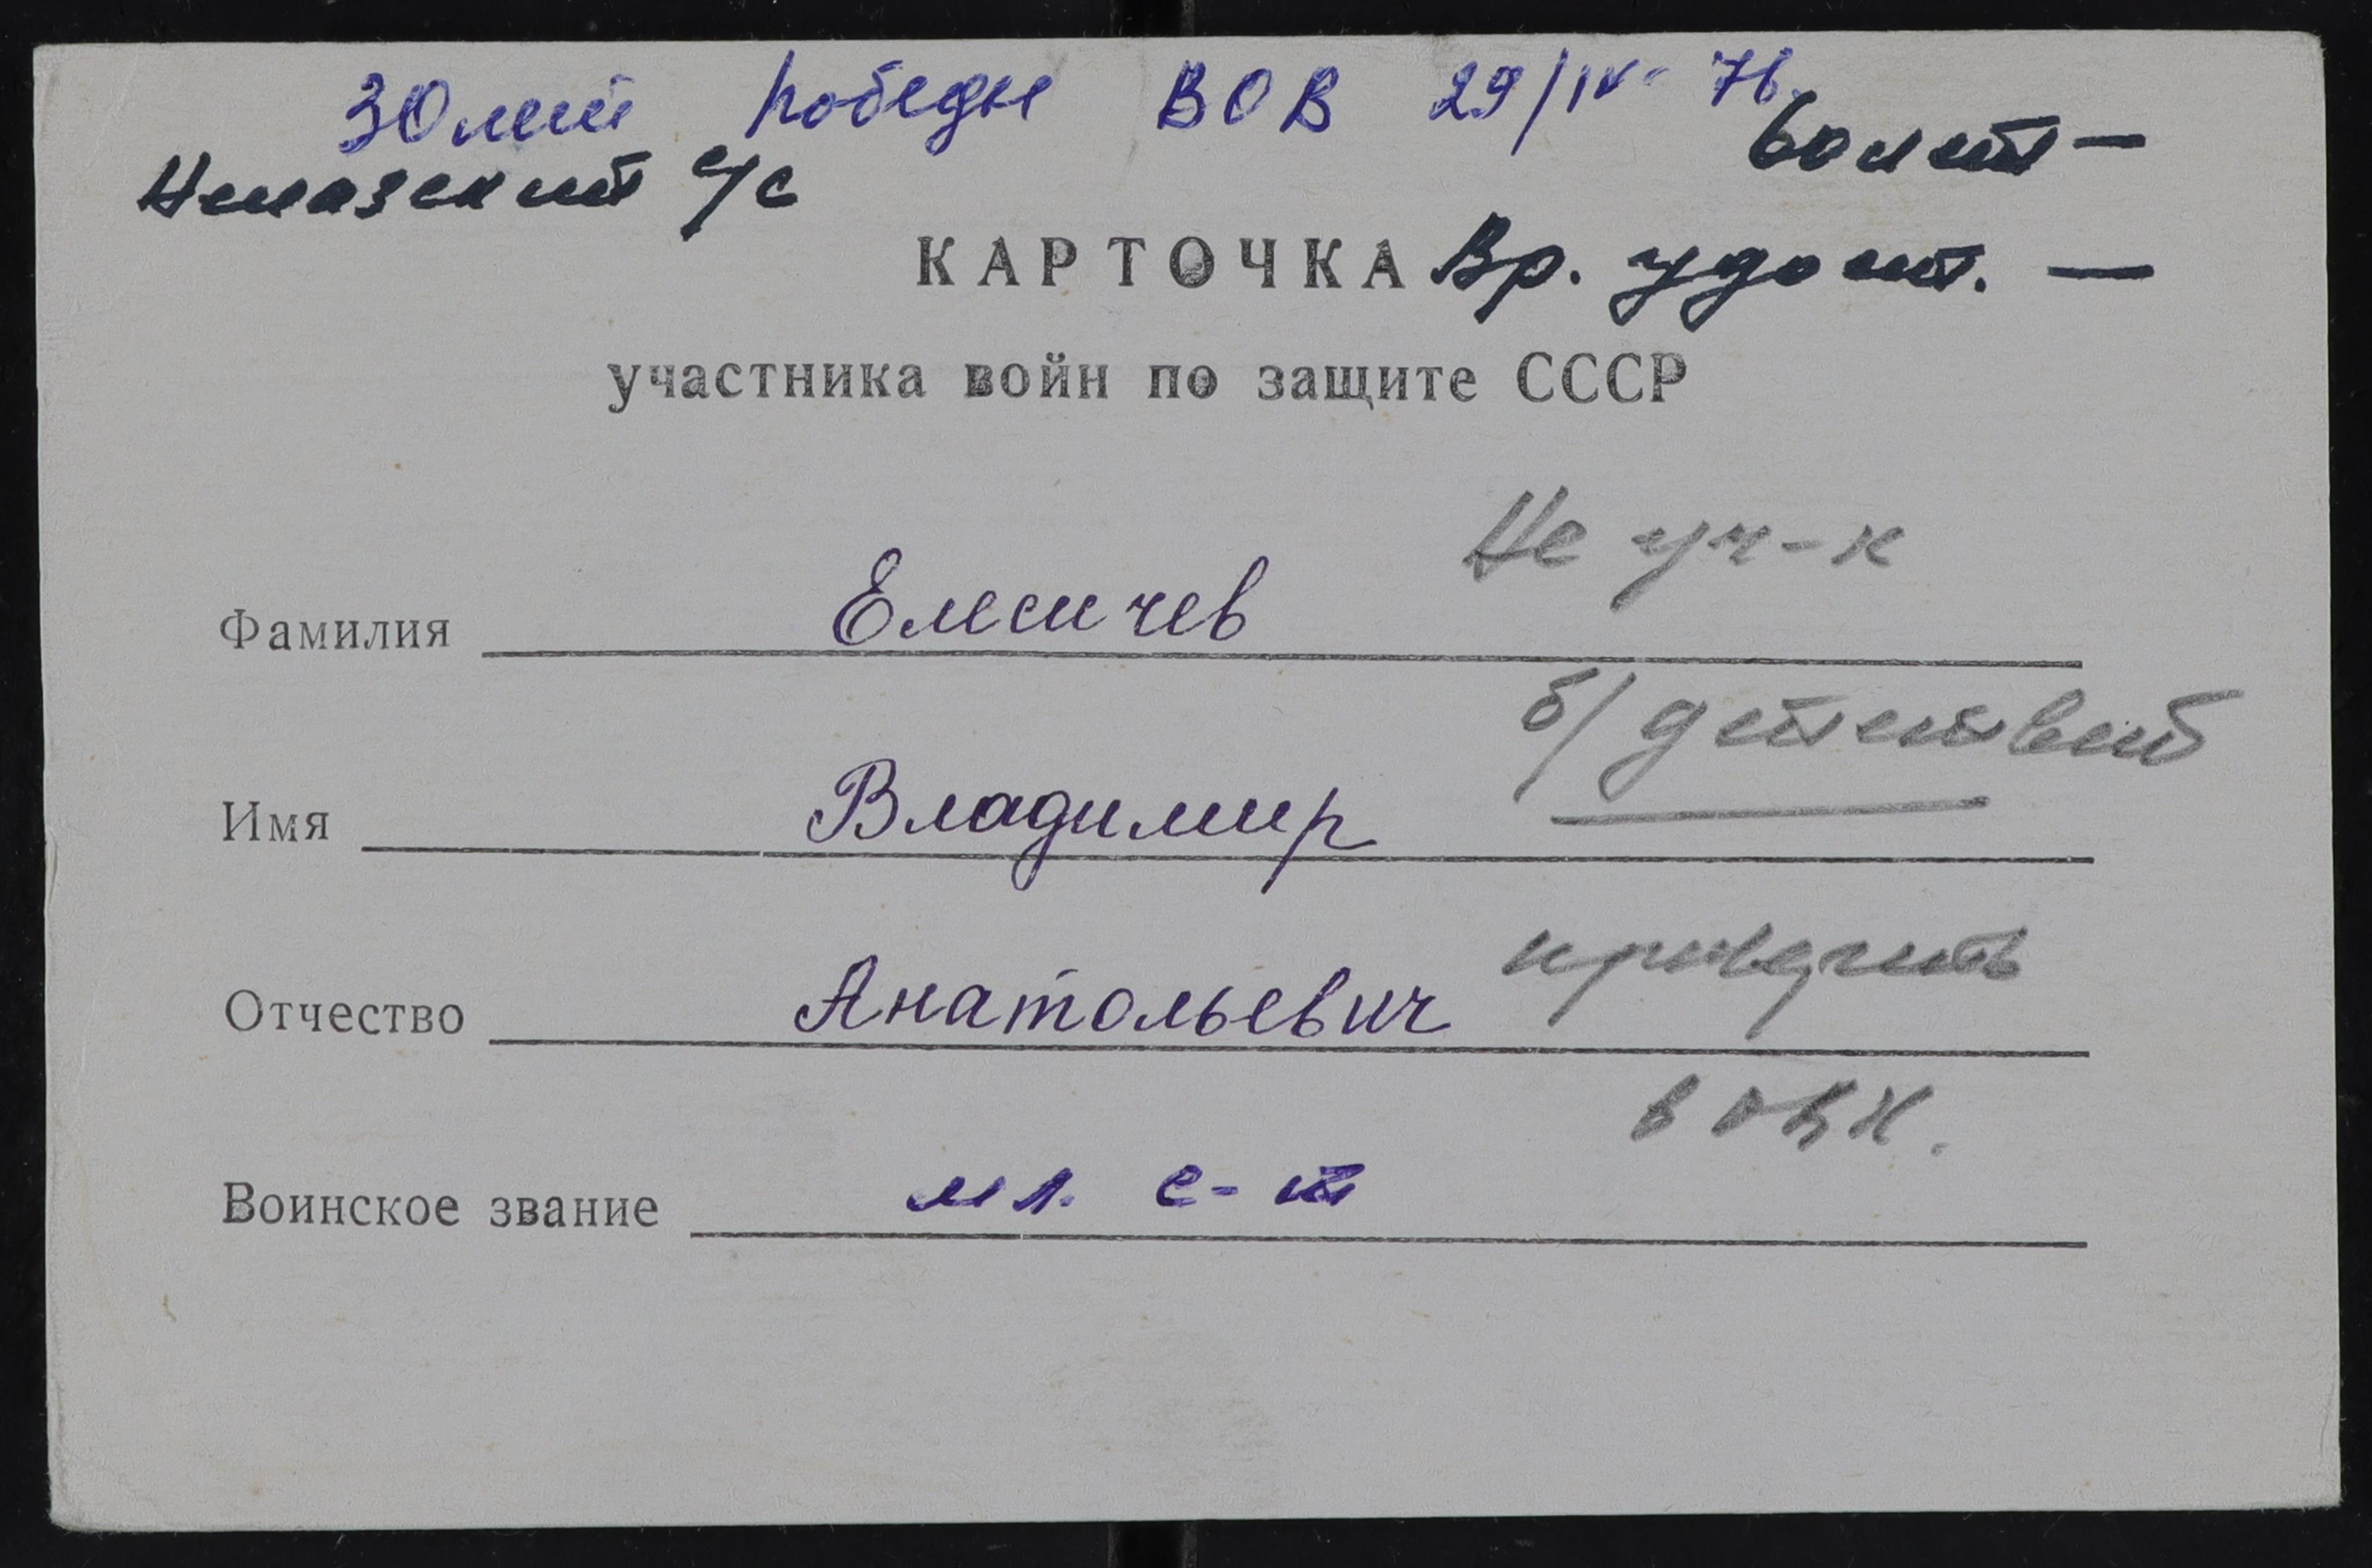 30 лет победы ВОВ 29/IV-76.
60 лет —
с/с
КАРТОЧКА Вр. удост. —
участника войн по защите СССР
Не уч-к
Фамилия Елесичев
б/действий
Имя Владимир
Отчество Анатольевич
в
Воинское звание мл. с-т